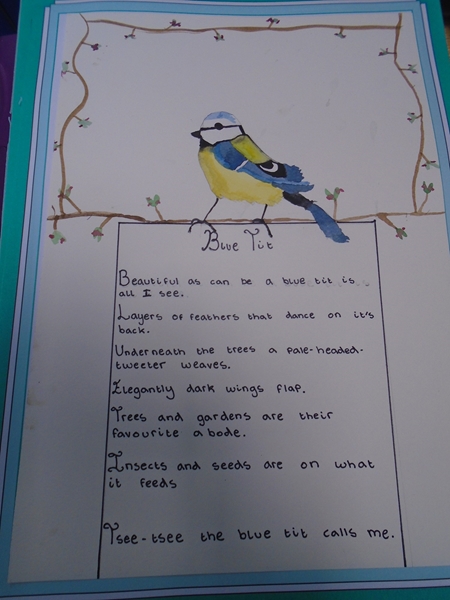 Blue Tit
Beautiful as can be a blue tit is
all I see.
Layers of feathers that dance on it's
back.
Underneath the trees a pale-headed-
tweeter weaves.
Elegantly dark wings flap.
Trees and gardens are their
favourite a bode.
Insects and seeds are on what
it feeds
Tsee-tsee the blue tit calls me.